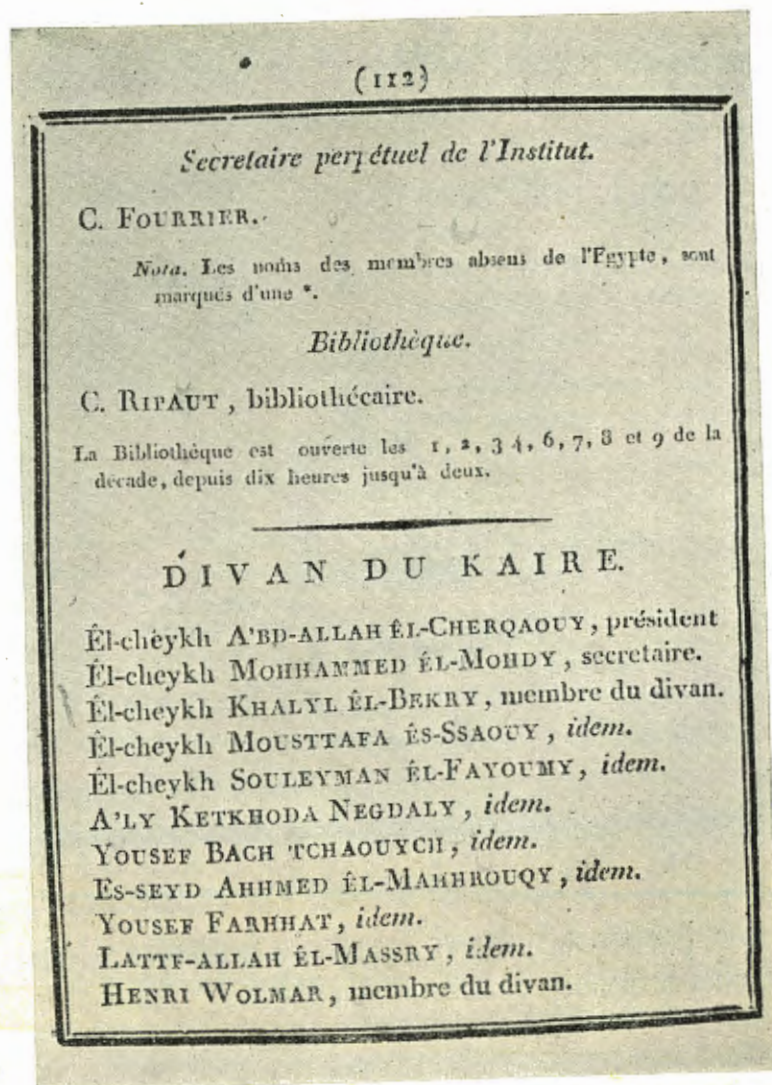 (112)
Secretaire perpétuel de l'Institut.
C. FOURRIER.
Nota. Les noms des membres absens de l'Egypte, sont
marqués d'une *.
Bibliothèque.
C. RIPAUT, bibliothécaire.
La Bibliothéque est ouverte les 1, 2, 3 4, 6, 7, 8 et 9 de la
décade, depuis dix heures jusqu'à deux.
DIVAN DU KAIRE.
Êl-cheykh A'BD-ALLAH ÊL-CHERQAOUY, président
Êl-cheykh MOHHAMMED ÊL-MOHDY, secretaire.
Êl-cheykh KHALYL ÊL-BEKRY, membre du divan.
Êl-cheykh MOUSTTAFA ÊS-SSAOUY, idem.
Êl-cheykh SOULEYMAN ÊL-FAYOUMY, idem.
A'LY KETKHODA NEGDALY, idem.
YOUSEF BACH TCHAOUYCH, idem.
ES-SEYD AHHMED ÊL-MAHHROUQY, idem.
YOUSEF FARHHAT, idem.
LATTF-ALLAH ÊL-MASSRY, idem.
HENRI WOLMAR, membre du divan.